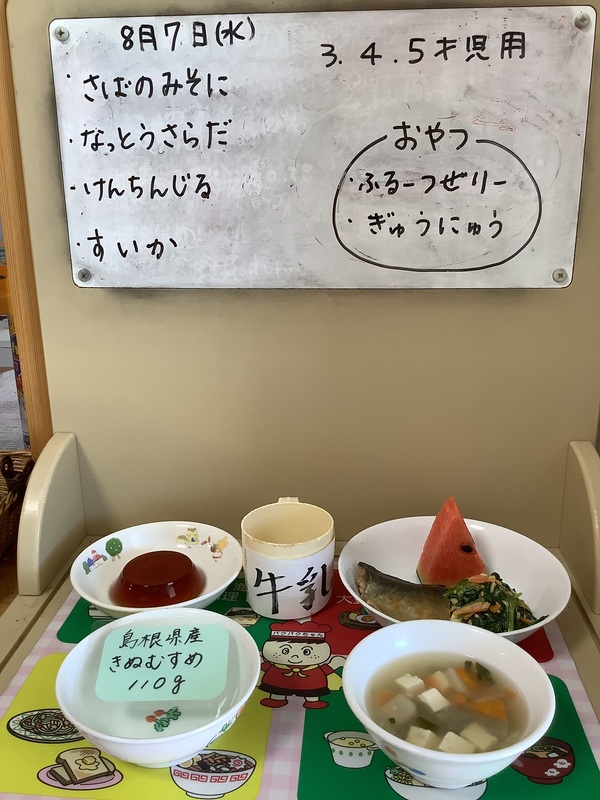 8月7日(水)
3.4.5才児用
・さばのみそに
・なっとうさらだ
・けんちんじる
・すいか
おやつ
・ふるーつぜりー
・ぎゅうにゅう
牛乳
島根県産
きぬむすめ
110g
パクパクちゃん